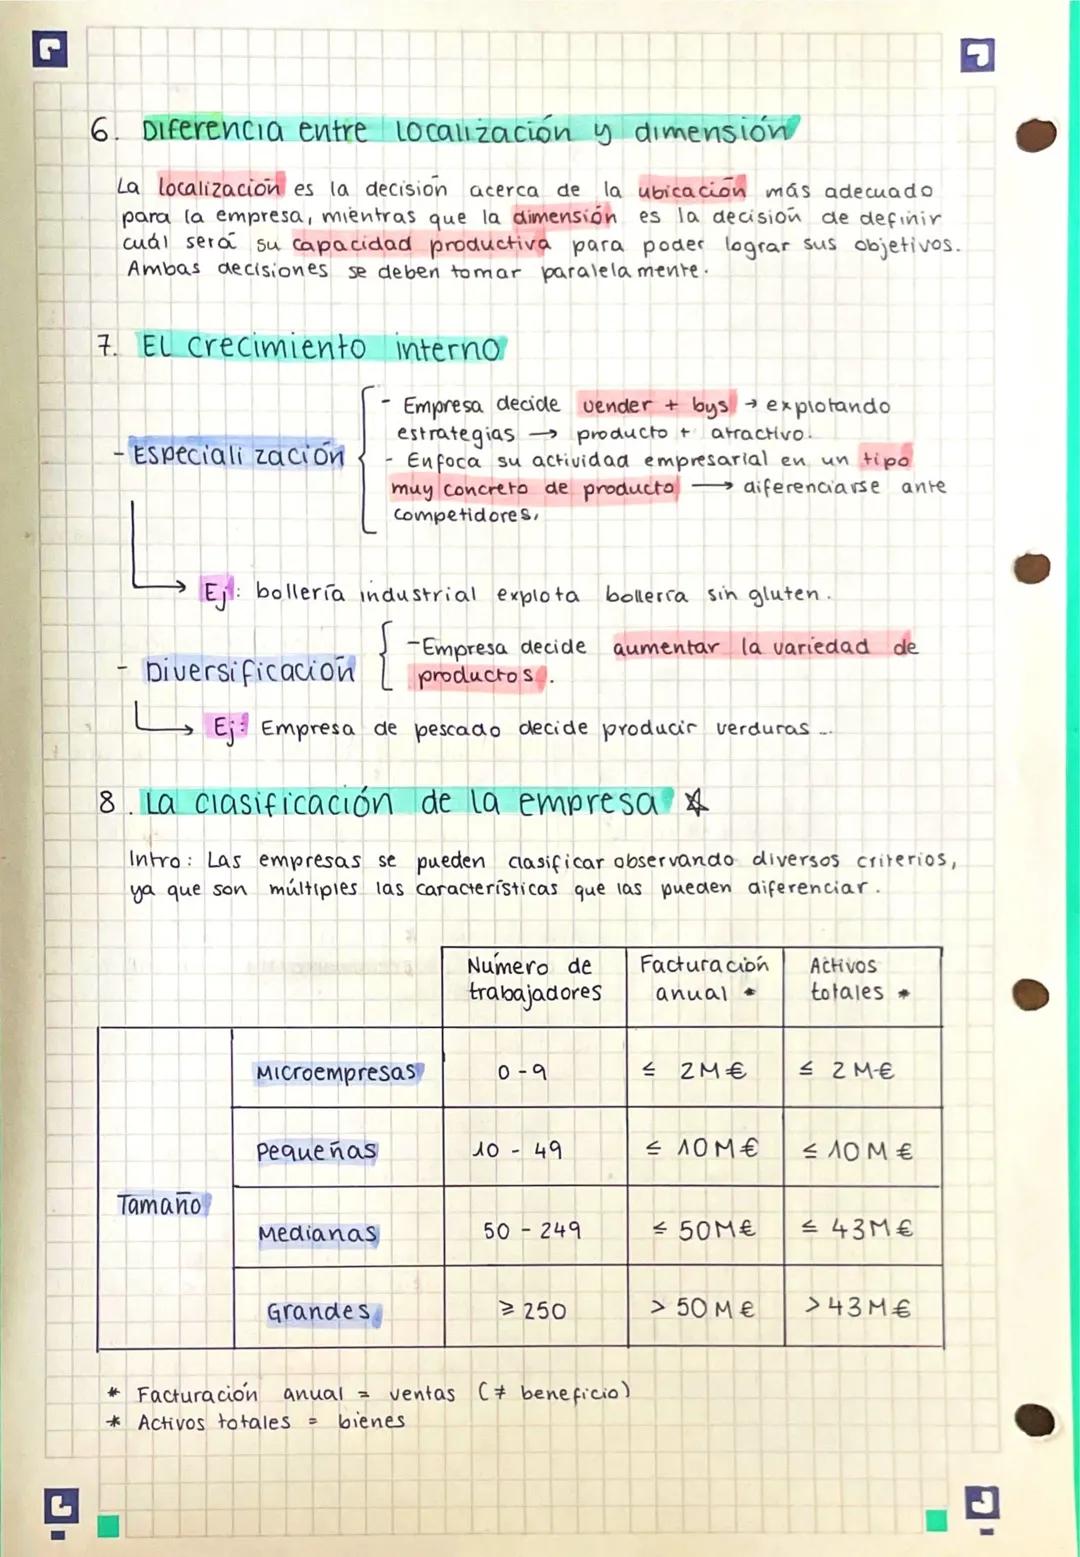 6. Diferencia entre localización y dimensión
La localización es la decisión acerca de la ubicación más adecuado
para la empresa, mientras que la dimensión es la decisión de definir
cuál será su capacidad productiva para poder lograr sus objetivos.
Ambas decisiones se deben tomar paralelamente.
7. El crecimiento interno
- Especialización
- Empresa decide vender + bys → explotando
estrategias → producto + atractivo.
- Enfoca su actividad empresarial en un tipo
muy concreto de producto → diferenciarse ante
competidores.
Ej: bollería industrial explota bollerra sin gluten.
- Diversificación
- Empresa decide aumentar la variedad de
productos.
Ej: Empresa de pescado decide producir verduras ...
8. La clasificación de la empresa
Intro: Las empresas se pueden clasificar observando diversos criterios,
ya que son múltiples las características que las pueden diferenciar.
Número de trabajadores Facturación anual * Activos totales *
Tamaño
Microempresas 0-9 ≤ 2M€ ≤ 2M€
Pequeñas 10 - 49 ≤ 10M€ ≤ 10M€
Medianas 50 - 249 ≤ 50M€ ≤ 43M€
Grandes ≥ 250 > 50M€ > 43M€
* Facturación anual = ventas (≠ beneficio)
* Activos totales = bienes